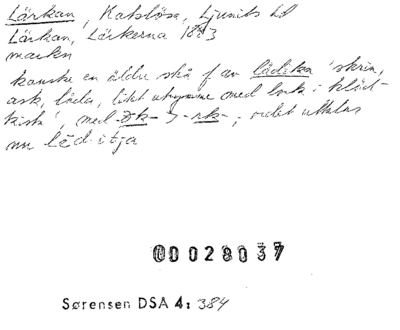 Lärkan, Katslösa, Ljunits hd
Lärkan, Lärkerna 1883
marken
kanske en äldre skå f av lädika 'skrin,
ask, låda, litet utrymme med lock i kläd-
kista', med -dk- > -rk-; ordet uttalas
nu
00028037
Sørensen DSA 4: 384